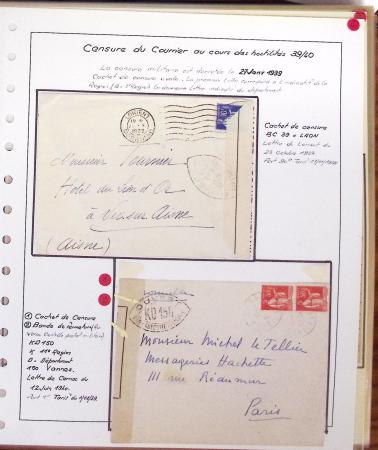 Censure du Courrier au cours des hostilités 39/40
La censure militaire est décrétée le 27 Janv 1939
Cachet de censure ovale. La première lettre correspond à l'indicatif de la
Région / B = 1° Région la deuxième lettre indicatif du département
LORIENT
1939
Cachet de censure
BC 39 = LAON
Lettre de Lorient du
23 Octobre 1939
Monsieur Fournier
Hôtel du Lion d'Or
à Vic sur Aisne
(Aisne)
① Cachet de Censure
② Bande de fermeture du
KD 150
K 11e Région
D = Département
150 Vannes
Lettre de Carnac du
12 Juin 1940
KD 154
Monsieur Michel Le Tellier
Messageries Hachette
111 rue Réaumur
Paris